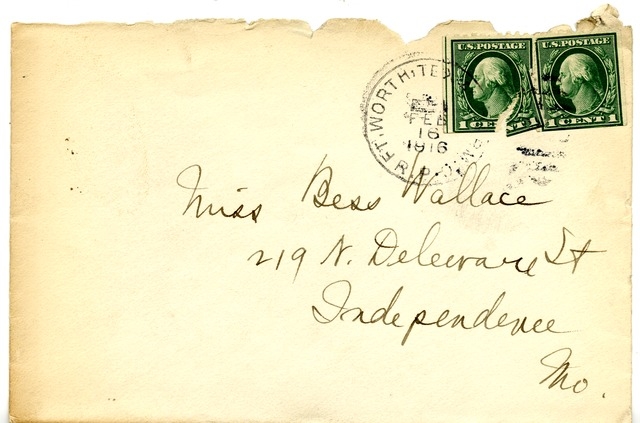 U.S.POSTAGE U.S.POSTAGE
1 CENT 1 1 CENT 1
FT. WORTH, TEX
FEB
16
1916
R.P.O.
Miss Bess Wallace
219 N. Deleware St
Independence
Mo.